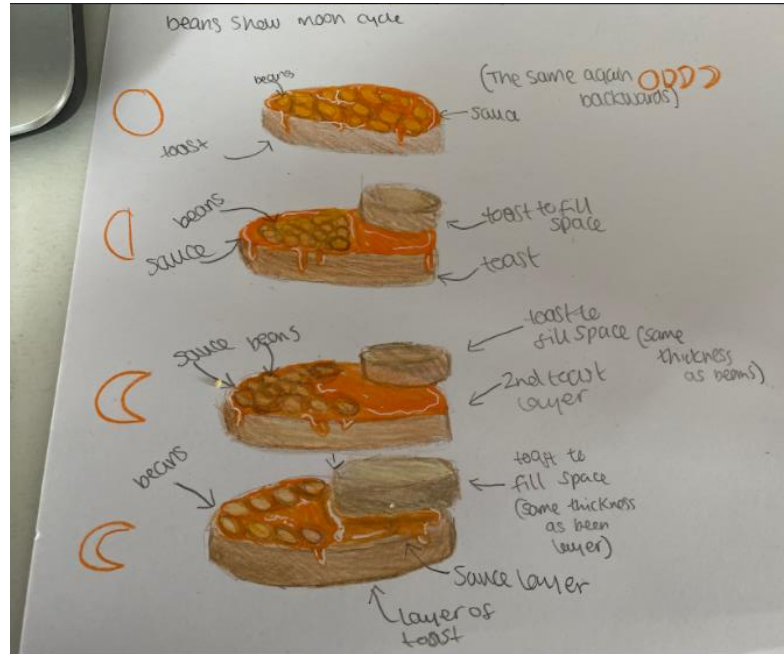 beans show moon cycle
beans
(The same again
backwards)
sauce
toast
beans
sauce
toast to fill
space
toast
sauce beans
toast to
fill space (same
thickness
as beans)
2nd toast
layer
beans
toast to
fill space
(same thickness
as been
layer)
sauce layer
layer of
toast